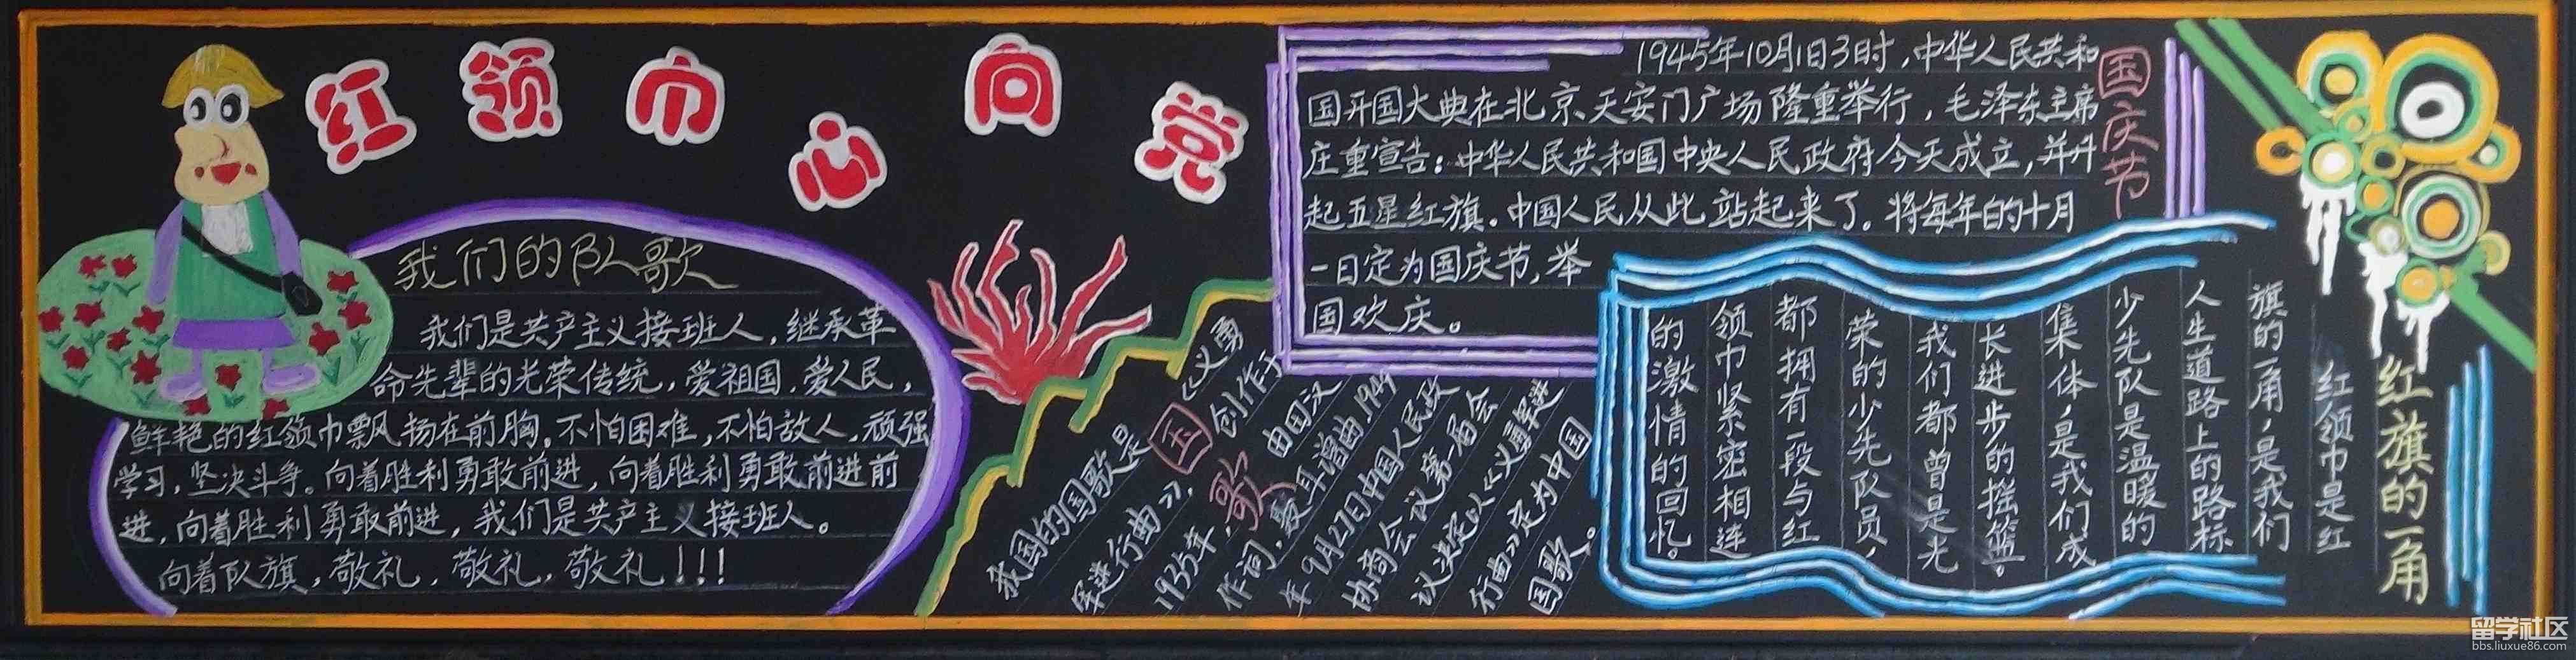 红领巾心向党
我们的队歌
我们是共产主义接班人,继承革
命先辈的光荣传统,爱祖国,爱人民,
鲜艳的红领巾飘扬在前胸,不怕困难,不怕敌人,顽强
学习,坚决斗争。向着胜利勇敢前进,向着胜利勇敢前进前
进,向着胜利勇敢前进,我们是共产主义接班人。
向着队旗,敬礼,敬礼,敬礼!!!
国歌
我国的国歌是《义勇
军进行曲》,创作于
1935年,由田汉
作词,聂耳谱曲,1949
年9月27日中国人民政
协商会议第一届会
议决定以《义勇军进
行曲》定为中国
国歌。
国庆节
1945年10月1日3时,中华人民共和
国开国大典在北京天安门广场隆重举行,毛泽东主席
庄重宣告:中华人民共和国中央人民政府今天成立,并升
起五星红旗.中国人民从此站起来了。将每年的十月
一日定为国庆节,举
国欢庆。
红旗的一角
红领巾是红
旗的一角,是我们
人生道路上的路标
少先队是温暖的
集体,是我们成
长进步的摇篮。
我们都曾是光
荣的少先队员,
都拥有一段与红
领巾紧密相连
的激情的回忆。
留学社区
bbs.liuxue86.com